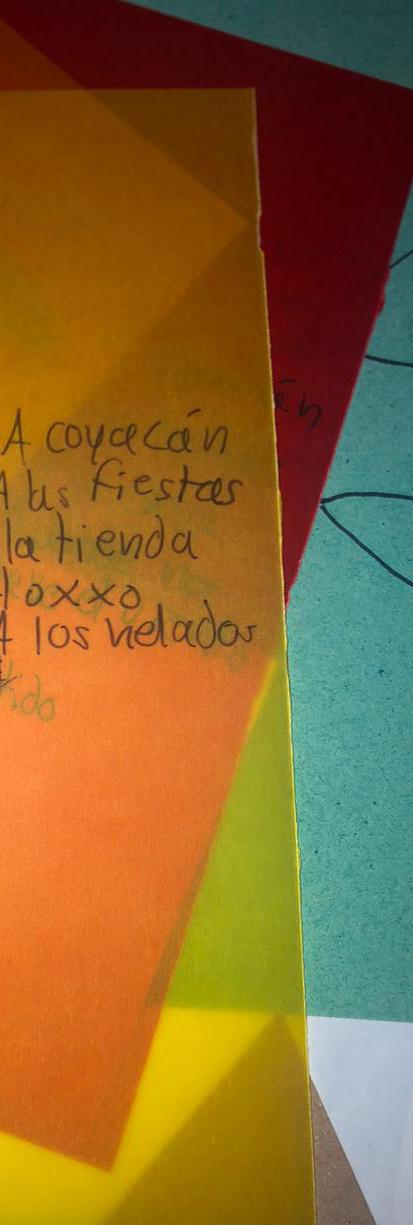 A coyacán
A las fiestas
la tienda
oxxo
A los helados
én